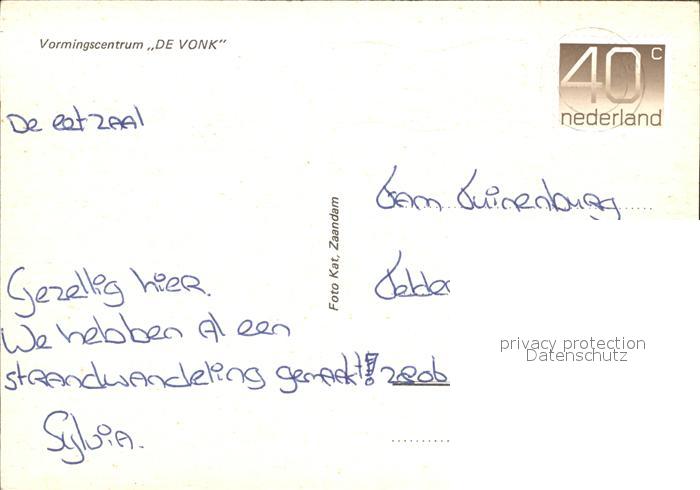 Vormingscentrum „DE VONK”
40 c
nederland
De eetzaal
Fam
Gezellig hier.
We hebben al een
strandwandeling gemaakt!
Sylvia.
Foto Kat, Zaandam
privacy protection
Datenschutz